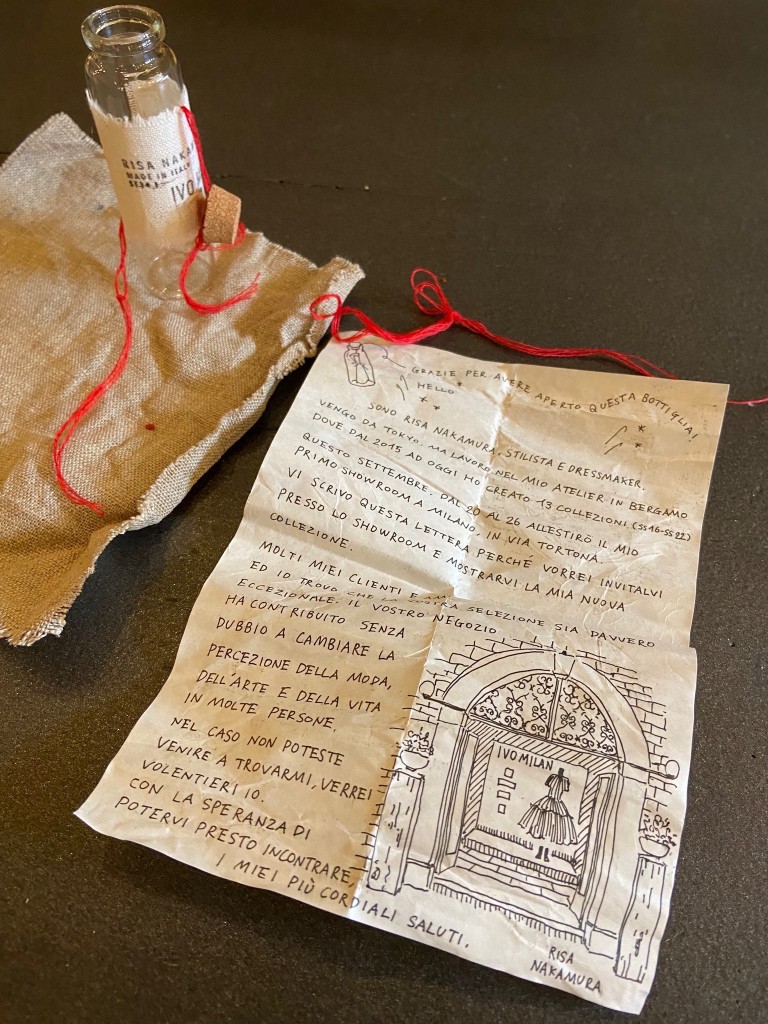 RISA NAKA
MADE IN ITALY
IVO
GRAZIE PER AVERE APERTO QUESTA BOTTIGLIA!
HELLO
SONO RISA NAKAMURA, STILISTA E DRESSMAKER.
VENGO DA TOKYO, MA LAVORO NEL MIO ATELIER IN BERGAMO
DOVE DAL 2015 AD OGGI HO CREATO 13 COLLEZIONI (SS16-SS22)
QUESTO SETTEMBRE, DAL 20 AL 26 ALLESTIRÒ IL MIO
PRIMO SHOWROOM A MILANO, IN VIA TORTONA.
VI SCRIVO QUESTA LETTERA PERCHÉ VORREI INVITALVI
PRESSO LO SHOWROOM E MOSTRARVI LA MIA NUOVA
COLLEZIONE.
MOLTI MIEI CLIENTI E
ED IO TROVO CHE LA VOSTRA SELEZIONE SIA DAVVERO
ECCEZIONALE. IL VOSTRO NEGOZIO
HA CONTRIBUITO SENZA
DUBBIO A CAMBIARE LA
PERCEZIONE DELLA MODA,
DELL'ARTE E DELLA VITA
IN MOLTE PERSONE.
NEL CASO NON POTESTE
VENIRE A TROVARMI, VERREI
VOLENTIERI IO.
CON LA SPERANZA DI
POTERVI PRESTO INCONTRARE,
I MIEI PIÙ CORDIALI SALUTI.
IVO MILAN
RISA
NAKAMURA